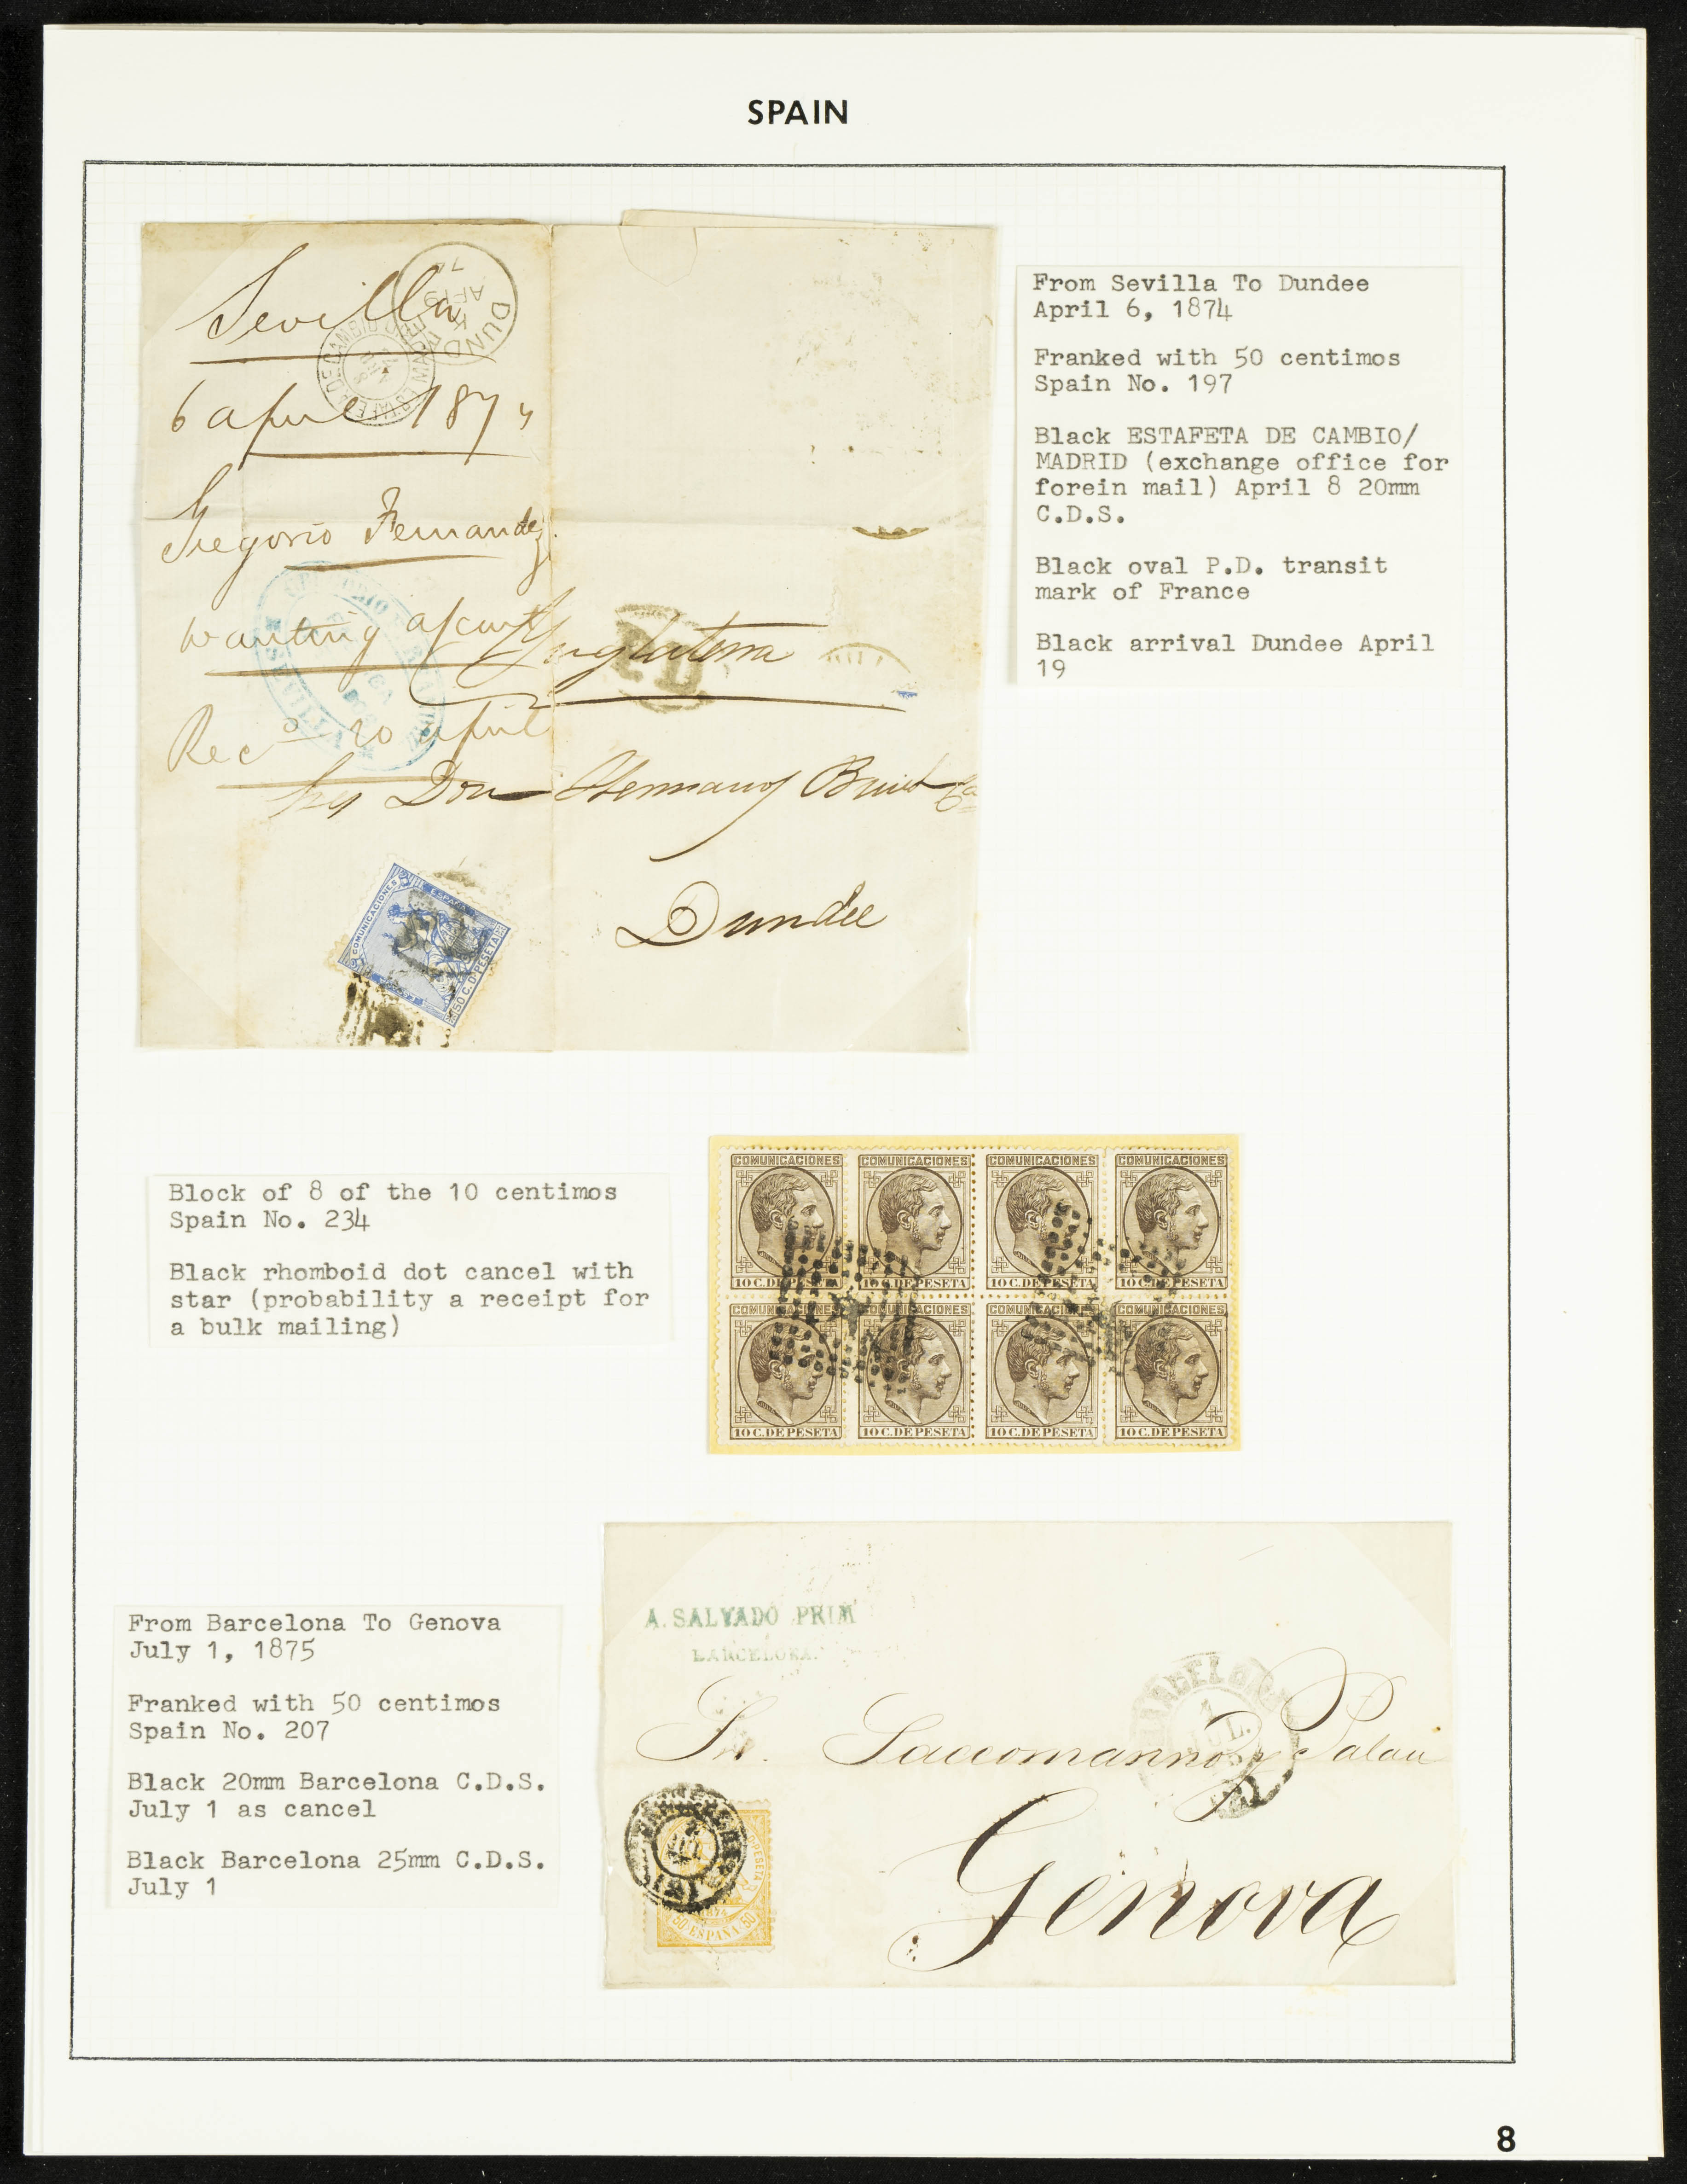 SPAIN
Sevilla
6 april 1874
Gregorio Fernandez
wanting
Recd 20 april
Inglaterra
Dundee
DUNDEE
AP 19
ESTAFETA DE CAMBIO MADRID
SEVILLA
PD
COMUNICACIONES
ESPAÑA
50 C. D PESETA
From Sevilla To Dundee
April 6, 1874
Franked with 50 centimos
Spain No. 197
Black ESTAFETA DE CAMBIO/
MADRID (exchange office for
forein mail) April 8 20mm
C.D.S.
Black oval P.D. transit
mark of France
Black arrival Dundee April
19
Block of 8 of the 10 centimos
Spain No. 234
Black rhomboid dot cancel with
star (probability a receipt for
a bulk mailing)
COMUNICACIONES COMUNICACIONES COMUNICACIONES COMUNICACIONES
10 C. DE PESETA 10 C. DE PESETA 10 C. DE PESETA 10 C. DE PESETA
COMUNICACIONES COMUNICACIONES COMUNICACIONES COMUNICACIONES
10 C. DE PESETA 10 C. DE PESETA 10 C. DE PESETA 10 C. DE PESETA
From Barcelona To Genova
July 1, 1875
Franked with 50 centimos
Spain No. 207
Black 20mm Barcelona C.D.S.
July 1 as cancel
Black Barcelona 25mm C.D.S.
July 1
A. SALVADO PRIM
BARCELONA.
BARCELONA
1
JUL.
Sr. Saccomanno y Palau
Genova
PESETA
1874
50 ESPAÑA 50
8